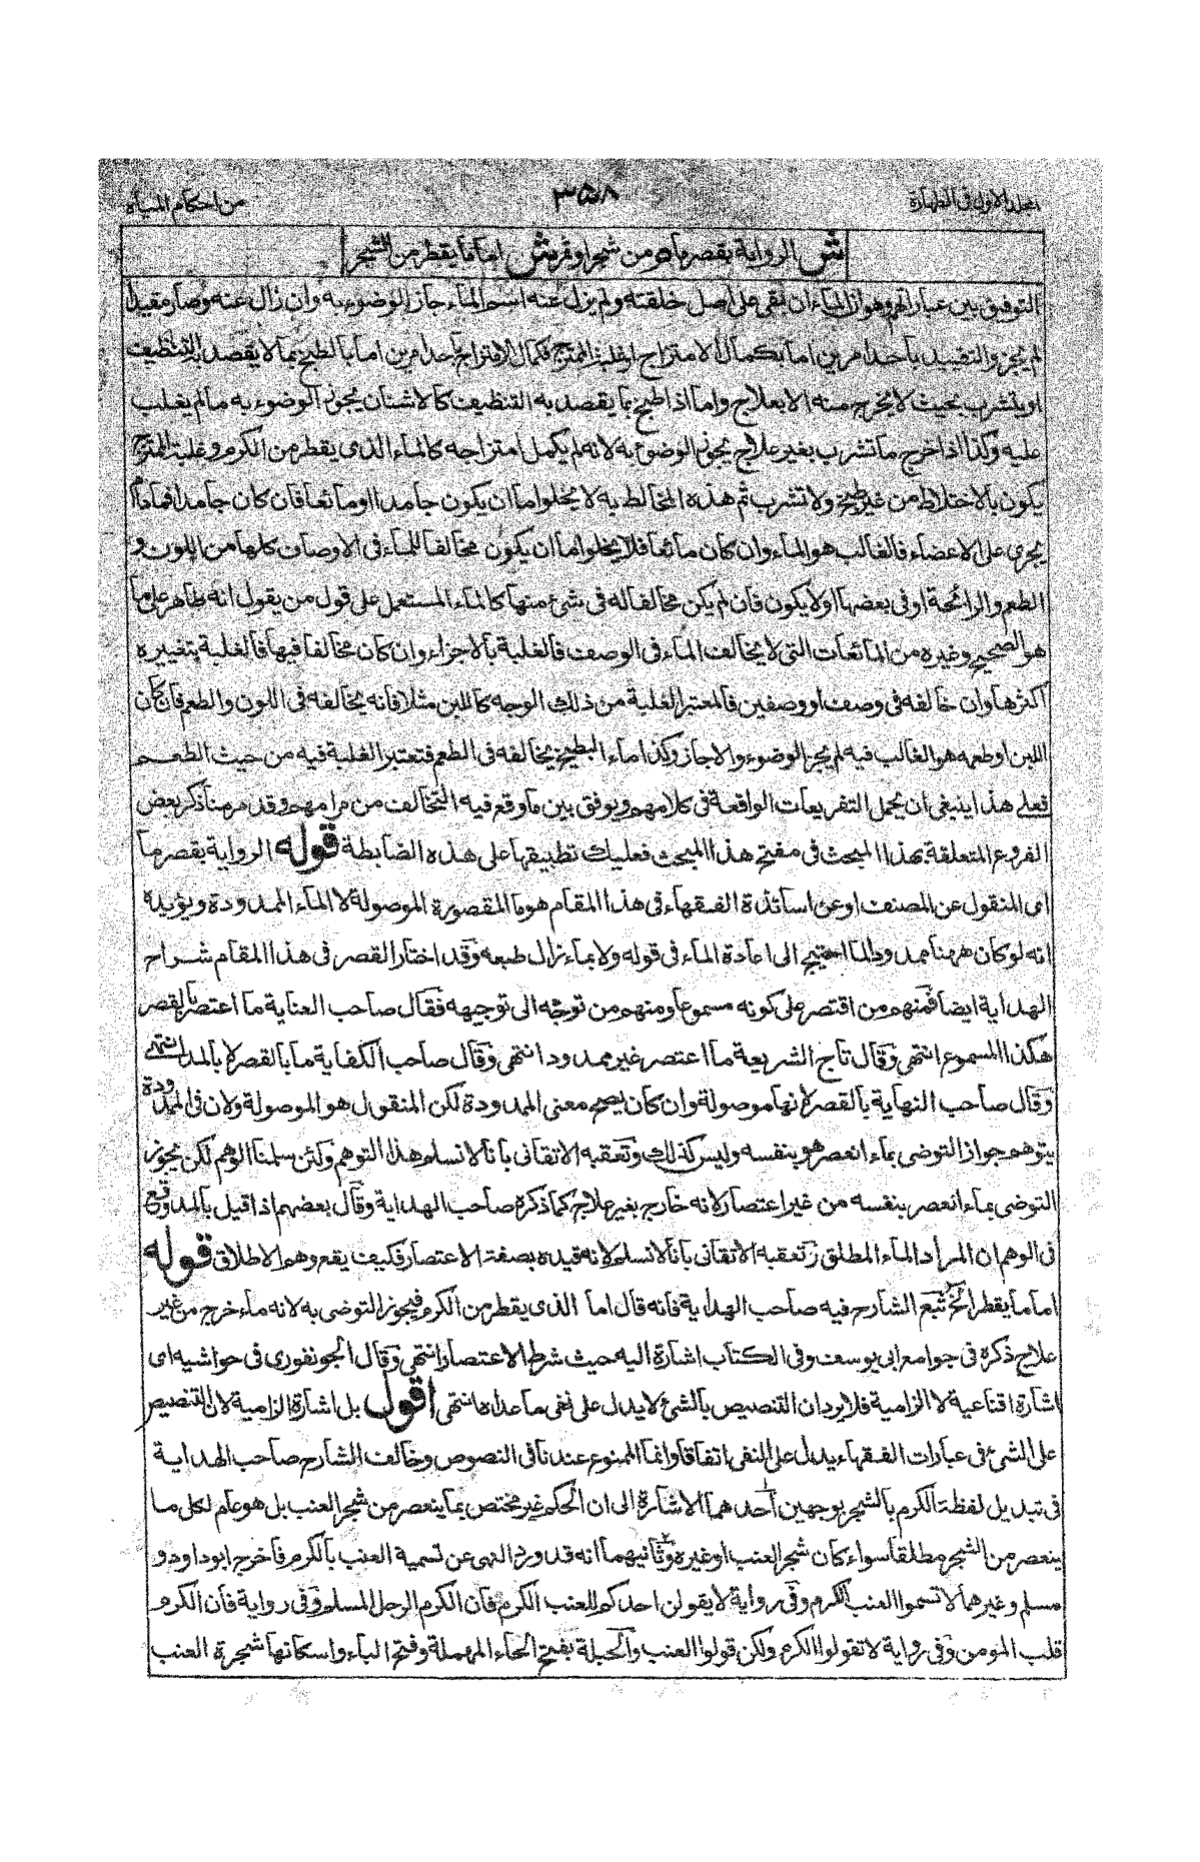 المجلد الاول فى الطهارة
٣٥٨
من احكام المياه
ش الرواية بقصر ما هو من شجر او ثمر ش اما ما يقطر من الشجر
التوفيق بين عباراتهم وهو ان الماء ان بقى على اصل خلقته ولم يزل عنه اسم الماء جاز الوضوء به وان زال عنه وصار مقيدا
لم يجز والتقييد باحد امرين اما بكمال الامتزاج او غلبة الممتزج فكمال الامتزاج باحد امرين اما بالطبخ بما لا يقصد به التنظيف
او بتشرب بحيث لا يخرج منه الا بعلاج واما اذا طبخ بما يقصد به التنظيف كالاشنان يجوز الوضوء به ما لم يغلب
عليه وكذا اذا خرج ما تشرب بغير علاج يجوز الوضوء به لانه لم يكمل امتزاجه كالماء الذى يقطر من الكرم وغلبة الممتزج
يكون بالاختلاط من غير طبخ ولا تشرب ثم هذه المخالط به لا يخلوا ما ان يكون جامدا او مائعا فان كان جامدا فما دام
يجرى على الاعضاء فالغالب هو الماء وان كان مائعا فلا يخلوا ما ان يكون مخالفا للماء فى الاوصاف كلها من اللون و
الطعم والرائحة او فى بعضها او لا يكون فان لم يكن مخالفا له فى شئ منها كالماء المستعمل على قول من يقول انه طاهر على ما
هو الصحيح وغيره من المائعات التى لا يخالف الماء فى الوصف فالغلبة بالاجزاء وان كان مخالفا فيها فالغلبة بتغييره
اكثرها وان خالفه فى وصف او وصفين فالمعتبر الغلبة من ذلك الوجه كاللبن مثلا فانه يخالفه فى اللون والطعم فان كان
اللبن او طعمه هو الغالب فيه لم يجز الوضوء والا جاز وكذا ماء البطيخ يخالفه فى الطعم فتعتبر الغلبة فيه من حيث الطعم
فعلى هذا ينبغى ان يحمل التفريعات الواقعة فى كلامهم ويوفق بين ما وقع فيه التخالف من مرامهم وقد مر منا ذكر بعض
الفروع المتعلقة بهذا المبحث فى مفتح هذا المبحث فعليك تطبيقها على هذه الضابطة قوله الرواية بقصر ما
اى المنقول عن المصنف او عن اساتذة الفقهاء فى هذا المقام هو ما المقصورة الموصولة لا الماء الممدودة ويؤيده
انه لو كان ههنا ممدودا لما احتيج الى اعادة الماء فى قوله ولا بماء زال طبعه وقد اختار القصر فى هذا المقام شراح
الهداية ايضا فمنهم من اقتصر على كونه مسموعا ومنهم من توجه الى توجيهه فقال صاحب العناية ما اعتصر بالقصر
هكذا المسموع انتهى وقال تاج الشريعة ما اعتصر غير ممدود انتهى وقال صاحب الكفاية ما بالقصر لا بالمد انتهى
وقال صاحب النهاية بالقصر لانها موصولة وان كان يصح معنى الممدودة لكن المنقول هو الموصولة ولان فى الممدودة
يتوهم جواز التوضى بماء انعصر هو بنفسه وليس كذلك وتعقبه الاتقانى بانا لا نسلم هذا التوهم ولئن سلمنا الوهم لكن يجوز
التوضى بماء انعصر بنفسه من غير اعتصار لانه خارج بغير علاج كما ذكره صاحب الهداية وقال بعضهم اذا قيل بالمد وقع
فى الوهم ان المراد الماء المطلق وتعقبه الاتقانى بانا لا نسلم لانه قيده بصفة الاعتصار فكيف يقع وهم الاطلاق قوله
اما ما يقطر الخ تبع الشارح فيه صاحب الهداية فانه قال اما الذى يقطر من الكرم فيجوز التوضى به لانه ماء خرج من غير
علاج ذكره فى جوامع ابى يوسف وفى الكتاب اشارة اليه حيث شرط الاعتصار انتهى وقال الجونفورى فى حواشيه اى
اشارة اقناعية لا الزامية فلا يرد ان التنصيص بالشئ لا يدل على نفى ما عداه انتهى اقول بل اشارة الزامية لان التنصيص
على الشئ فى عبارات الفقهاء يدل على النفى اتفاقا وانما الممنوع عندنا فى النصوص وخالف الشارح صاحب الهداية
فى تبديل لفظة الكرم بالشجر بوجهين احدهما الاشارة الى ان الحكم غير مختص بما ينعصر من شجر العنب بل هو عام لكل ما
ينعصر من الشجر مطلقا سواء كان شجر العنب او غيره وثانيهما انه قد ورد النهى عن تسمية العنب بالكرم فاخرج ابو داود و
مسلم وغيرهما لا تسموا العنب الكرم وفى رواية لا يقولن احدكم للعنب الكرم فان الكرم الرجل المسلم وفى رواية فان الكرم
قلب المؤمن وفى رواية لا تقولوا الكرم ولكن قولوا العنب والحبلة بفتح الحاء المهملة وفتح الباء واسكانها شجرة العنب